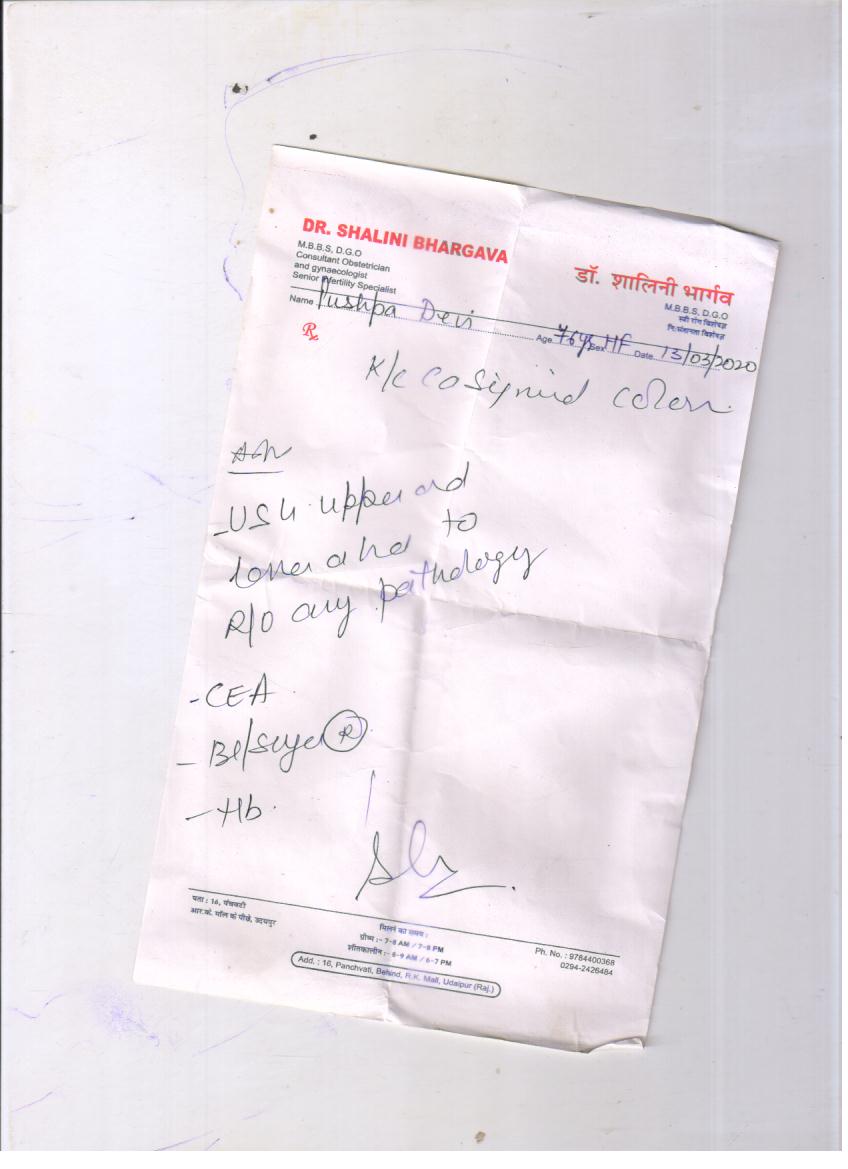 DR. SHALINI BHARGAVA
M.B.B.S, D.G.O
Consultant Obstetrician
and gynaecologist
Senior Infertility Specialist
डॉ. शालिनी भार्गव
M.B.B.S, D.G.O
स्त्री रोग विशेषज्ञ
नि:संतानता विशेषज्ञ
Name Pushpa Devi Age 76 ys Sex MF Date 13/03/2020
K/c Ca Sigmoid colon
- USG upper and
lower abd to
R/O any pathology
- CEA
- Bl/Sugar (R)
- Hb
पता : 16, पंचवटी
आर.के. मॉल के पीछे, उदयपुर
मिलने का समय :
ग्रीष्म :- 7-8 AM / 7-8 PM
शीतकालीन :- 8-9 AM / 6-7 PM
Ph. No. : 9784400368
0294-2426484
Add. : 16, Panchvati, Behind, R.K. Mall, Udaipur (Raj.)